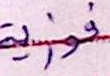 فوزية